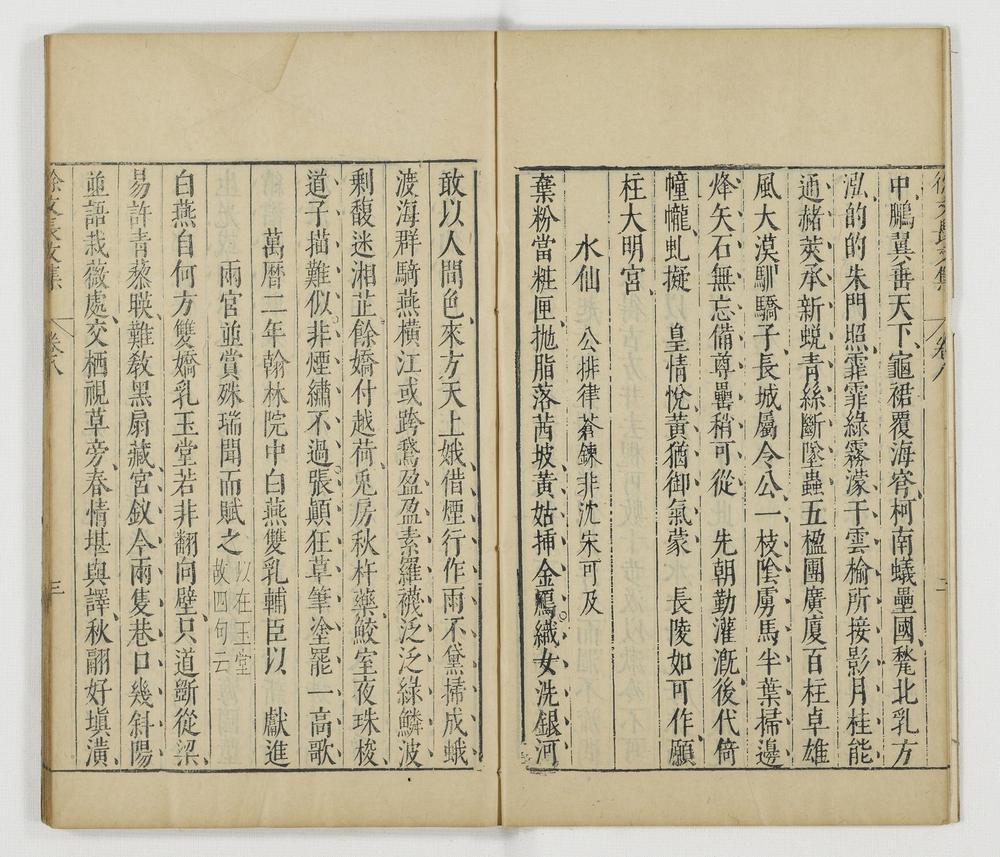 中鵬翼番天下龜裙覆海窨柯南蟻壘國甃北乳方
泓的的朱門照霏霏綠霧濛干雲榆所接影月桂能
通赭莢承新蛻青絲斷墜蟲五楹團廣廈百柱卓雄
風大漠馴驕子長城屬令公一枝陰虜馬半葉掃邊
烽矢石無忘備尊罍稍可從 先朝勤灌漑後代倚
幢幰虬擬 皇情悅黃猶御氣蒙 長陵如可作願
柱大明宮
水仙 公排律蒼鍊非沈宋可及
葉粉當粧匣拋脂落茜坡黃姑揷金鴈織女洗銀河
敢以人間色來方天上娥借煙行作雨不黛掃成蛾
渡海群騎燕橫江或跨鶩盈盈素羅襪泛泛綠鱗波
剩馥迷湘芷餘嬌付越荷兎房秋杵藥鮫室夜珠梭
道子描難似非煙繡不過張顚狂草筆塗罷一高歌
萬曆二年翰林院中白燕雙乳輔臣以 獻進
兩宮並賞殊瑞聞而賦之 以在玉堂故四句云
白燕自何方雙嬌乳玉堂若非翻向壁只道斷從梁
易許靑藜暎難敎黑扇藏宮釵今兩隻巷口幾斜陽
並語栽薇處交栖視草旁春情堪與譯秋翮好塡潢
徐文長文集 卷八 三